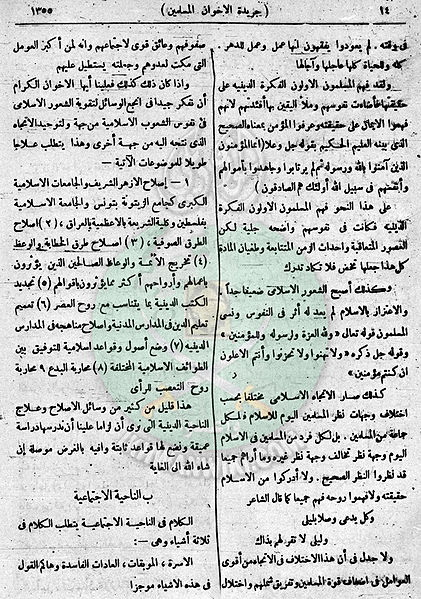 ١٤
( جريدة الاخوان المسلمين )
١٣٥٥
فى وقته . لم يعودوا يفقهون لها عمل وعمل للدهر .
كله والحياة كلها عاجلها وآجالها
ولقد فهم المسلمون الاولون الفكرة الدينيه على
حقيقتها فأضاءت نفوسهم وملأ اليقين بها أفئدتهم لأنهم
فهموا الايمان على حقيقته وعرفوا المؤمن بمعناه الصحيح
الذى بينه العليم الحكيم بقوله جل وعلا ( انما المؤمنون
الذين آمنوا بالله ورسوله ثم لم يرتابوا وجاهدوا بأموالهم
وأنفسهم فى سبيل الله أولئك هم الصادقون )
على هذا النحو فهم المسلمون الاولون الفكرة
الدينيه فكانت فى نفوسهم واضحه جلية لكن
القصور المتعاقبة وأحداث الزمن المتتابعة وطغيان المادة
كل هذا جعلها تغمض فلا تكاد تدرك
وكذلك أصبح الشعور الاسلامى ضعيفا جداً .
والاعتزاز بالاسلام لم يعد له أثر فى النفوس ونسى
المسلمون قوله تعالى « ولله العزة ولرسوله وللمؤمنين »
وقوله جل ذكره « ولا تهنوا ولا تحزنوا وأنتم الاعلون
ان كنتم مؤمنين »
كذلك صار الاتجاه الاسلامى مختلفا بحسب
اختلاف وجهات نظر المسلمين اليوم للاسلام فلكل
جماعة من المسلمين . بل لكل فرد من المسلمين فى الاسلام
اليوم وجهة نظر تخالف وجهة نظر غيره وما أراهم جميعا
قد نظروا النظر الصحيح . ولا أدركوا من الاسلام
حقيقته ولا فهموا روحه فهم جميعا كما قال الشاعر
وكل يدعى وصلا بليلى
وليلى لا تقر لهم بذاك
ولا جدل فى أن هذا الاختلاف فى الاتجاه من أقوى
العوامل فى اضعاف قوة المسلمين وتفريق شملهم واختلال
صفوفهم وعائق قوى لاجتماعهم وانه لمن أكبر العوامل
التى مكنت لعدوهم وجعلته يستطيل عليهم
واذا كان ذلك كذلك فعلينا أيها الاخوان الكرام
أن نفكر جيدا فى أنجع الوسائل لتقوية الشعور الاسلامى
فى نفوس الشعوب الاسلامية من جهة ولتوحيد الاتجاه
الذى تتجه اليه من جهة أخرى وهذا يتطلب علاجا
طويلا للموضوعات الآتية —
١ — إصلاح الازهر الشريف والجامعات الاسلامية
الكبرى كجامع الزيتونة بتونس والجامعة الاسلامية
بفلسطين وكلية الشريعة بالاعظمية بالعراق ، ( ٢ ) اصلاح
الطرق الصوفية ، ( ٣ ) اصلاح طرق الخطابة والوعظ
( ٤ ) تخريج الأئمة والوعاظ الصالحين الذين يؤثرون
بأعمالهم وأرواحهم أكثر مما يؤثرون بأقوالهم ( ٥ ) تجديد
الكتب الدينية بما يتناسب مع روح العصر ( ٦ ) تعميم
تعليم الدين فى المدارس المدنية واصلاح مناهجه فى المدارس
الدينيه ( ٧ ) وضع أصول وقواعد اسلامية للتوفيق بين
الطوائف الاسلامية المختلفة ( ٨ ) محاربة البدع ٩ محاربة
روح التعصب للرأى
هذا قليل من كثير من وسائل الاصلاح وعلاج
الناحية الدينية التى أرى لزاما علينا أن ندرسها دراسة
عميقة ونضع لها قواعد ثابتة وافيه بالغرض موصلة إن
شاء الله الى الغاية
ب الناحية الاجتماعية
الكلام فى الناحية الاجتماعية يتطلب الكلام فى
ثلاثة أشياء وهى —:
الاسرة ، الموبقات ، العادات الفاسدة وهاكم القول
فى هذه الاشياء موجزا